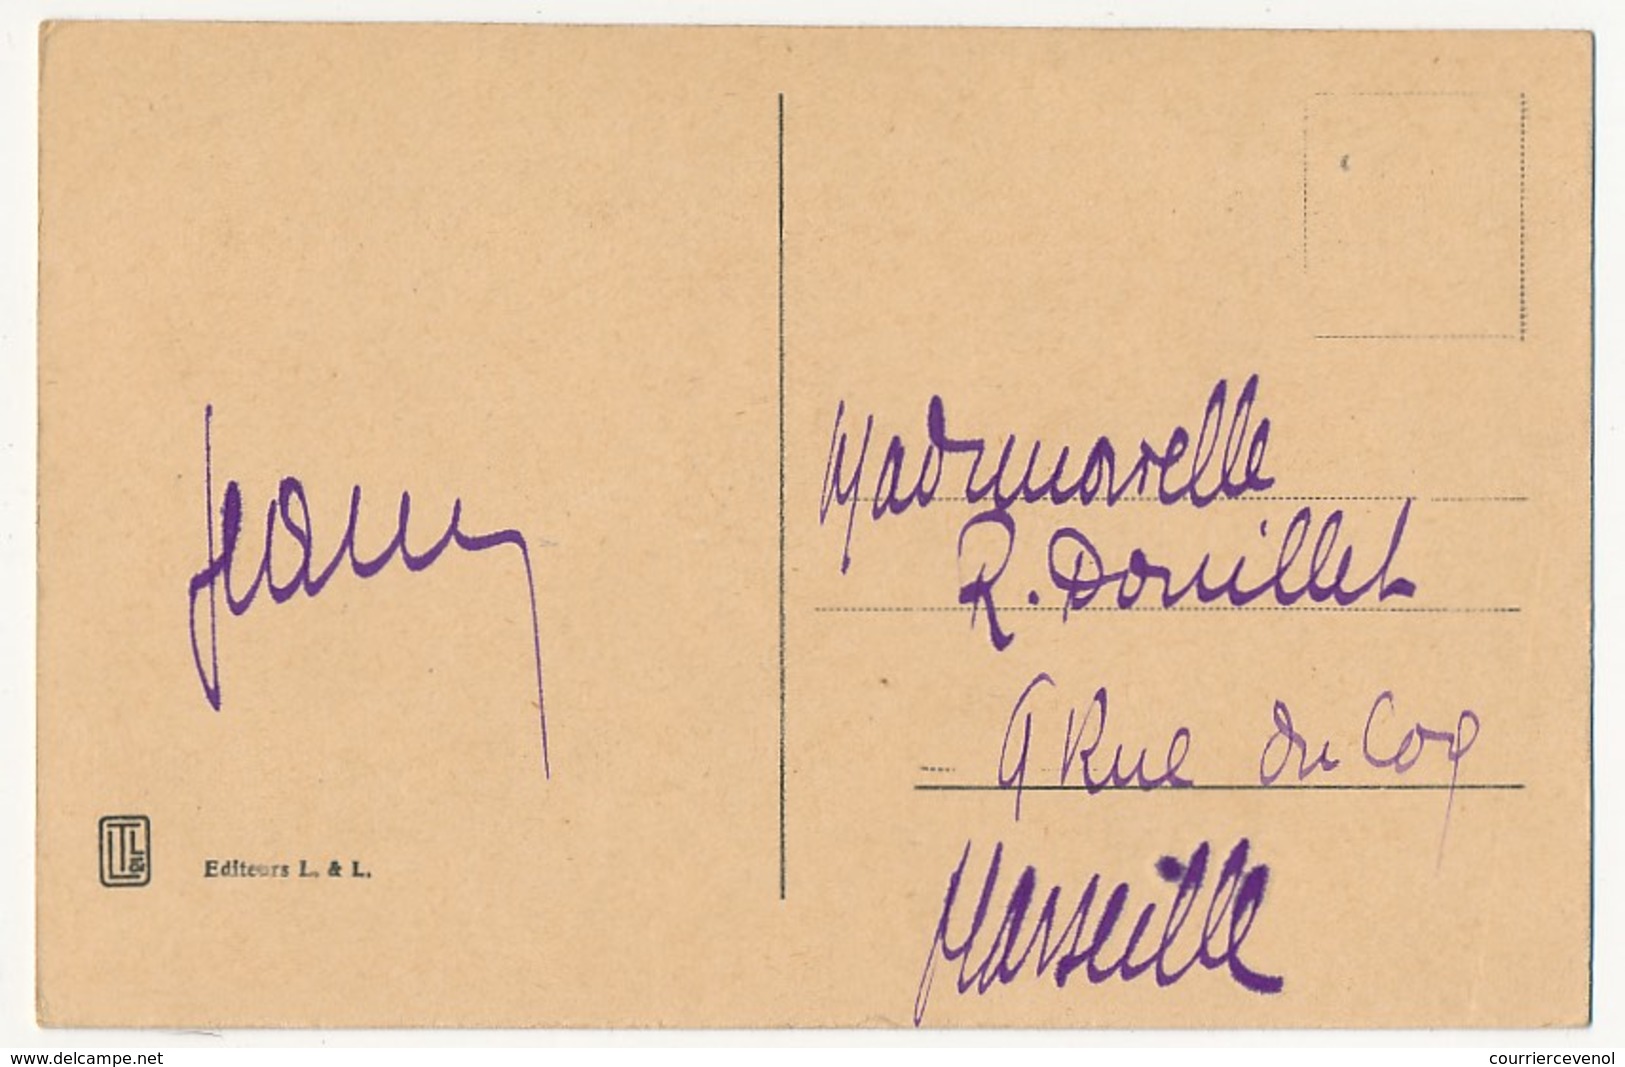 Jeanny
Mademoiselle
R. Douillet
9 Rue du Coq
Marseille
LTL &
Editeurs L. & L.
www.delcampe.net
courriercevenol